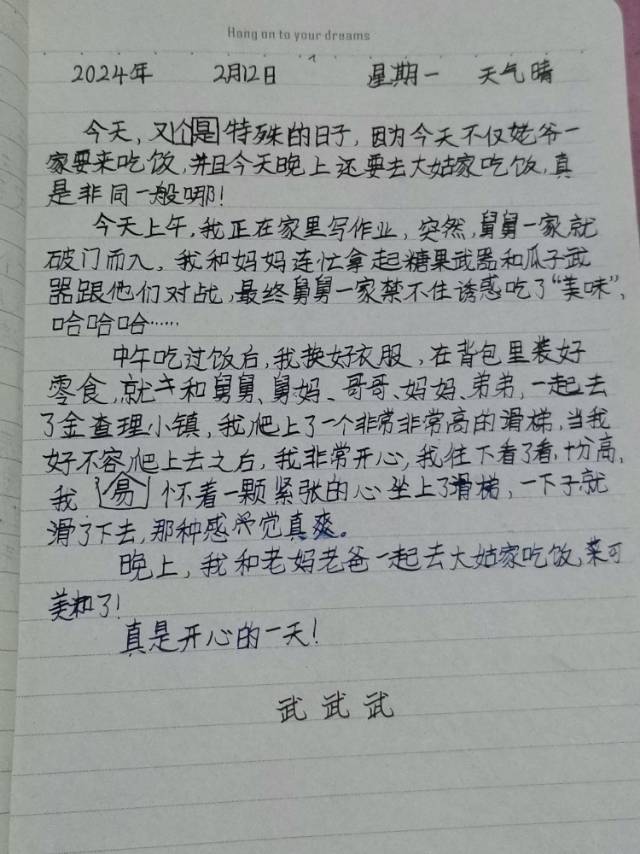 Hang on to your dreams
2024年 2月12日 星期一 天气晴
今天,又个是特殊的日子,因为今天不仅姥爷一
家要来吃饭,并且今天晚上还要去大姑家吃饭,真
是非同一般哪!
今天上午,我正在家里写作业,突然,舅舅一家就
破门而入,我和妈妈连忙拿起糖果武器和瓜子武
器跟他们对战,最终舅舅一家禁不住诱惑吃了“美味”,
哈哈哈……
中午吃过饭后,我换好衣服,在背包里装好
零食,就和舅舅、舅妈、哥哥、妈妈、弟弟,一起去
了金查理小镇,我爬上了一个非常非常高的滑梯,当我
好不容爬上去之后,我非常开心,我往下看了看,十分高,
我易怀着一颗紧张的心坐上了滑梯,一下子就
滑了下去,那种感觉真爽。
晚上,我和老妈老爸一起去大姑家吃饭,菜可
美了!
真是开心的一天!
武武武